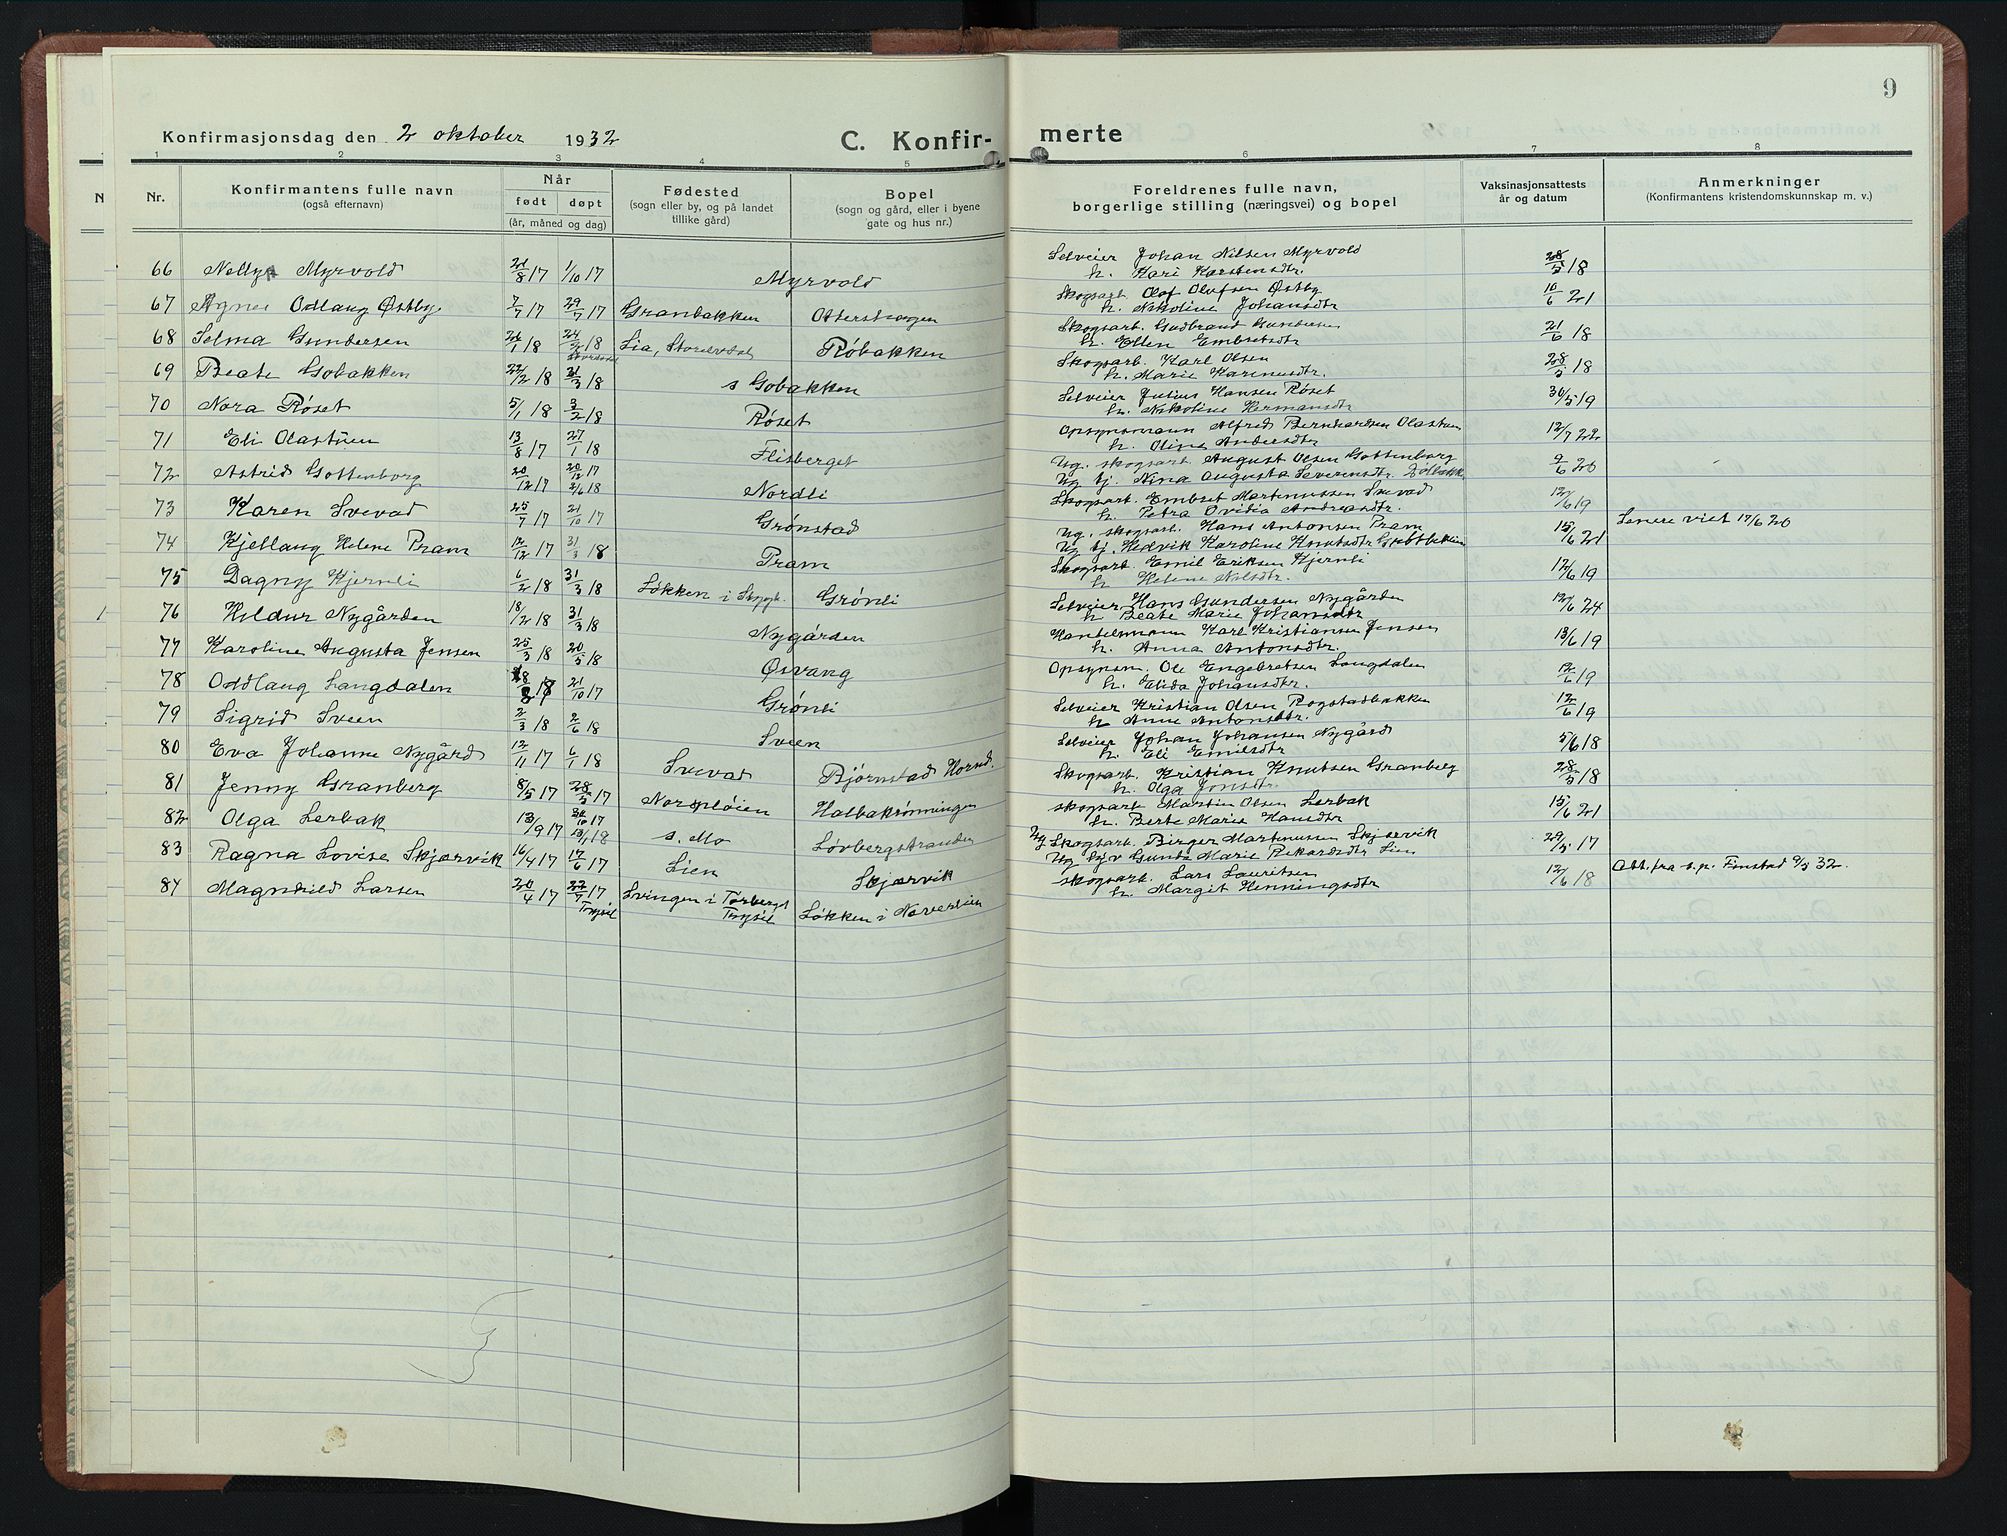 9
Konfirmasjonsdag den 2 oktober 1932 C. Konfir- merte
1 2 3 4 5 6 7 8
Nr. Konfirmantens fulle navn (også efternavn) Når født døpt (år, måned og dag) Fødested (sogn eller by, og på landet tillike gård) Bopel (sogn og gård, eller i byene gate og hus nr.) Foreldrenes fulle navn, borgerlige stilling (næringsvei) og bopel Vaksinasjonsattests år og datum Anmerkninger (Konfirmantens kristendomskunnskap m. v.)
66 Nelly Myrvold 21/8 17 1/10 17 Myrvold Selveier Johan Nilsen Myrvold 28/5 18
h. Kari Karstensdtr.
67 Agnes Odlaug Østby 7/7 17 29/7 17 Granbakken Skogsarb. Olaf Olufsen Østby 10/6 21
h. Nikoline Johansdtr
68 Selma Gundersen 26/1 18 24/2 18 Lia, Storelvdal Røbakken Skogsarb. Gudbrand Gundersen 21/6 18
h. Ellen Embretsdtr
69 Beate Gobakken 22/2 18 31/3 18 s Gobakken Skogsarb. Karl Olsen 28/5 18
h. Marie Karenusdtr.
70 Nora Røset 5/1 18 3/2 18 Røset Selveier Julius Hansen Røset 30/5 19
h. Nikoline Hermansdtr
71 Eli Olastuen 13/8 17 27/1 18 Flisberget Opsynsmann Alfred Bernhardsen Olastuen 12/7 22
h. Olina Andersdtr
72 Astrid Gottenborg 20/12 17 20/12 17 2/6 18 Nordli Ug. skogsarb. August Olsen Gottenborg 9/6 20
Ug. tj. Nina Augusta Severensdtr.
73 Karen Svevad 25/7 17 21/10 17 Grønstad Skogsarb. Embret Martinussen Svevad 12/6 19
h. Petra Ovidia Andreasdtr.
74 Kjellaug Helene Pram 12/12 17 31/3 18 Pram Ug. skogsarb. Hans Antonsen Pram 15/6 21 Senere viet 17/6 20
Ug. tj. Hedvik Karoline Knutsdtr
75 Dagny Kjernli 6/2 18 31/3 18 Løkken i Grønli Skogsarb. Emil Eriksen Kjernli 12/6 19
h. Helene Nilsdtr.
76 Hildur Nygården 18/2 18 31/3 18 Nygården Selveier Hans Gundersen Nygården 12/6 24
h. Beate Marie Johansdtr
77 Karoline Augusta Jensen 25/3 18 20/5 18 Øsvang Handelsmann Karl Kristiansen Jensen 13/6 19
h. Anna Antonsdtr.
78 Oddlaug Langdalen 21/10 17 Grønli Opsynsm. Ole Engebretsen Langdalen 12/6 19
h. Elida Johansdtr.
79 Sigrid Sveen 2/3 18 2/6 18 Sveen Selveier Kristian Olsen Rogstadbakken 12/6 19
h. Anne Antonsdtr.
80 Eva Johanne Nygård 12/11 17 6/1 18 Svevad Bjørnstad Nordl. Selveier Johan Johansen Nygård 5/6 18
h. Eli Emilsdtr
81 Jenny Granberg 8/5 17 28/5 17 Halbakrønningen Skogsarb. Kristian Knutsen Granberg 28/5 18
h. Olga Jonsdtr.
82 Olga Lerbak 13/9 17 30/10 17 13/1 18 s. Mo Løvbergstranden skogsarb Martin Olsen Lerbak 15/6 21
h. Berte Marie Hansdtr
83 Ragna Lovise Skjærvik 16/4 17 17/6 17 Lien Skjærvik Ug Skogsarb. Birger Martinussen Skjærvik 29/5 17
Ug tj.v Gunda Marie Rikardsdtr Lien
84 Magnhild Larsen 20/4 17 22/7 17 Trysil Svingen i Tørberget Trysil Løkken i Nordlien skogsarb. Lars Lauritsen 12/6 18 Att. fra s.p. Finstad 9/5 32.
h. Margit Henningsdtr